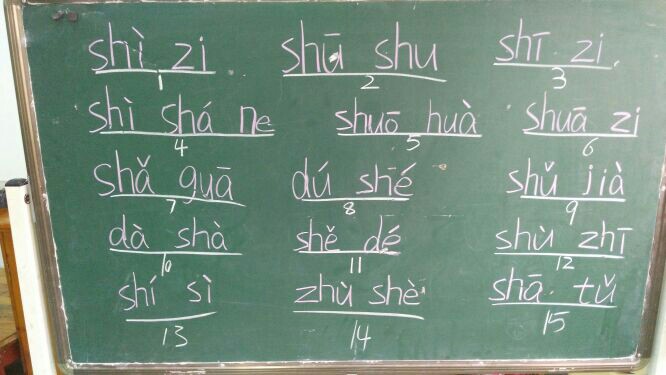 shì zi shū shu shī zi
1 2 3
shì shá ne shuō huà shuā zi
4 5 6
shǎ guā dú shé shǔ jià
7 8 9
dà shà shě dé shù zhī
10 11 12
shí sì zhù shè shā tǔ
13 14 15